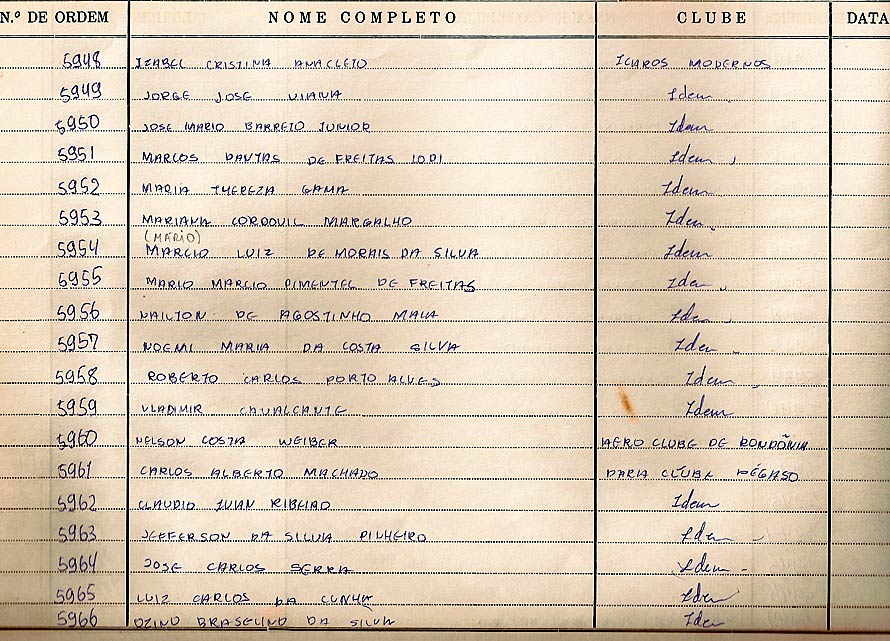 N.º DE ORDEM NOME COMPLETO CLUBE DATA
5948 IZABEL CRISTINA ANACLETO ICAROS MODERNOS
5949 JORGE JOSE VIANA Idem
5950 JOSE MARIO BARRETO JUNIOR Idem
5951 MARCOS DANTAS DE FREITAS LODI Idem
5952 MARIA THEREZA GAMA Idem
5953 MARIANA CORDOVIL MARGALHO Idem
(MÁRIO)
5954 MARCIO LUIZ DE MORAIS DA SILVA Idem
5955 MARIO MARCIO PIMENTEL DE FREITAS Idem
5956 NAILTON DE AGOSTINHO MAIA Idem
5957 NOEMI MARIA DA COSTA SILVA Idem
5958 ROBERTO CARLOS PORTO ALVES Idem
5959 VLADIMIR CAVALCANTE Idem
5960 NELSON COSTA WEIBER AERO CLUBE DE RONDÔNIA
5961 CARLOS ALBERTO MACHADO PARA CLUBE PÉGASO
5962 CLAUDIO IVAN RIBEIRO Idem
5963 JEFERSON DA SILVA PINHEIRO Idem
5964 JOSE CARLOS SERRA Idem
5965 LUIZ CARLOS DA CUNHA Idem
5966 OZINO BRASELINO DA SILVA Idem